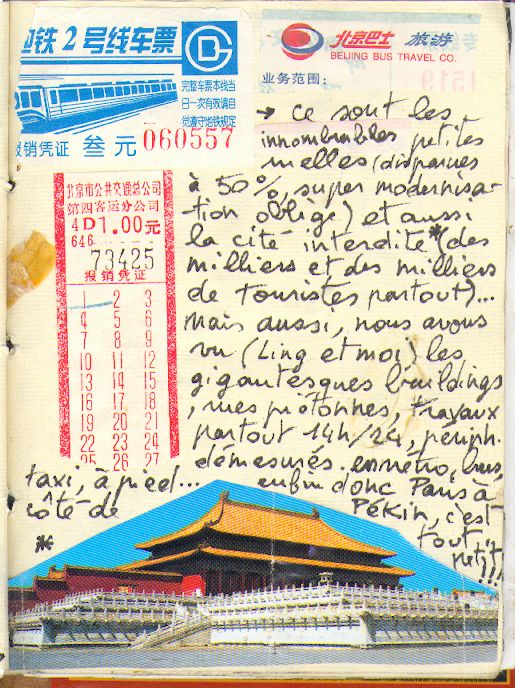 地铁2号线车票
完整车票本线当
日一次有效请自
觉遵守地铁规定
报销凭证 叁元 060557
北京巴士 旅游
BEIJING BUS TRAVEL CO.
业务范围:
1519
北京市公共交通总公司
第四客运分公司
4D1.00元
646
73425
报销凭证
1 2 3
4 5 6
7 8 9
10 11 12
13 14 15
16 17 18
19 20 21
22 23 24
25 26 27
→ ce sont les
innombrables petites
ruelles (disparues
à 50%, super modernisa-
tion oblige) et aussi
la cité interdite* (des
milliers et des milliers
de touristes partout)...
Mais aussi, nous avons
vu (Ling et moi) les
gigantesques buildings
, rues piétonnes, travaux
partout 14h/24, périph.
démesurés. en métro, bus,
taxi, à pied... enfin donc Paris à
côté de Pékin, c'est
tout
petit!!!
*